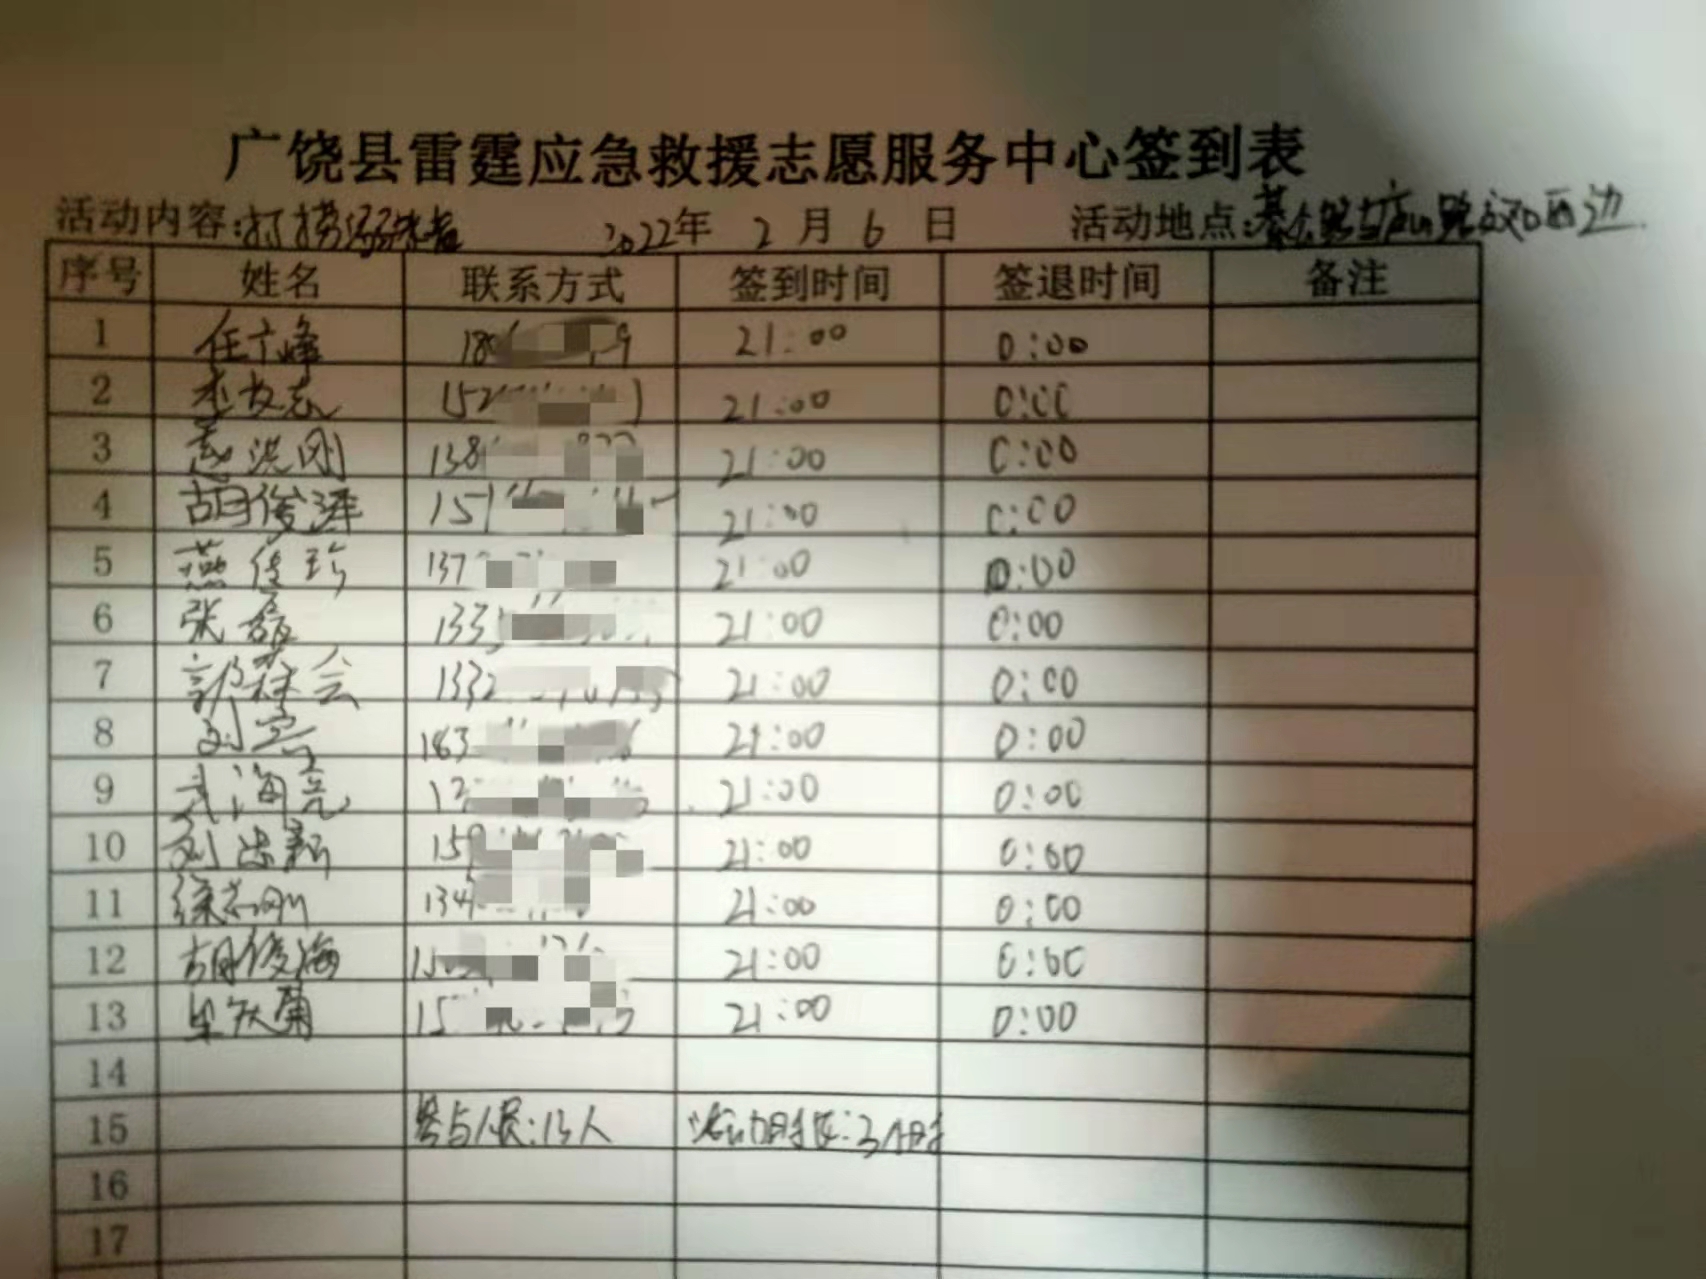 广饶县雷霆应急救援志愿服务中心签到表
活动内容:打捞溺水者 2022年 2 月 6 日 活动地点: 路与 路 西边
序号 姓名 联系方式 签到时间 签退时间 备注
1 任 峰 21:00 0:00
2 李 志 152 21:00 0:00
3 洪刚 138 21:00 0:00
4 胡俊泽 151 21:00 0:00
5 燕佳珍 137 21:00 0:00
6 张磊 133 21:00 0:00
7 郭 会 1332 21:00 0:00
8 刘亮 183 21:00 0:00
9 武海亮 21:00 0:00
10 刘 新 159 21:00 0:00
11 徐志刚 134 21:00 0:00
12 胡俊海 21:00 0:00
13 菊 15 21:00 0:00
14
15 参与人员:13人 活动时长:3小时
16
17